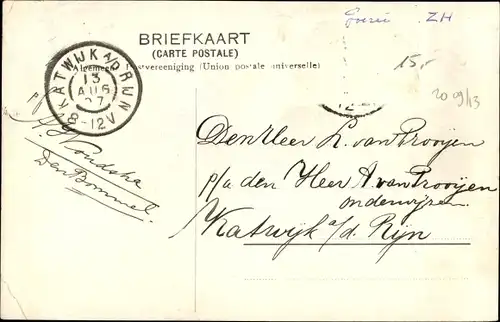 Goeree ZH
BRIEFKAART
(CARTE POSTALE)
Algemeene Postvereeniging (Union postale universelle)
15,-
20 09/13
KATWIJK A/D RIJN
13
AUG
07
8-12V
12
p/
Den Bommel
Den Heer L. van Prooijen
p/a den Heer A. van Prooijen
onderwijzer
Katwijk a/d. Rijn